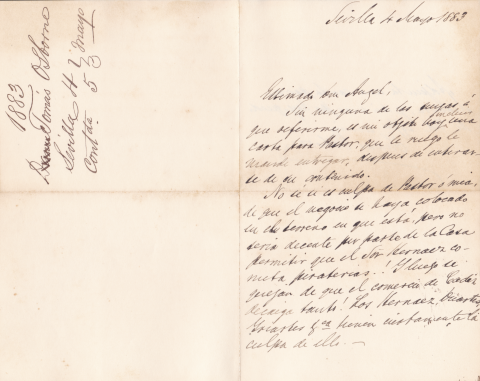 1883
Tomás Osborne
Sevilla 4 } Mayo
Contda 5
Sevilla 4 Mayo 1883
Estimado Don Angel,
Sin ninguna de las suyas, á
que referirme, es mi objeto hoy incluir una
carta para Pastor, que le ruego le
mande entregar, despues de enterar-
se de su contenido.
No sé si es culpa de Pastor ó mia,
de que el negocio se haya colocado
en el terreno en que está, pero no
sería decente por parte de la Casa
permitir que el Sor Hernaez co-
meta piraterias..! Y luego se
quejan de que el comercio de Cadiz
decaiga tanto! Los Hernaez,
tienen ciertamente la
culpa de ello. —